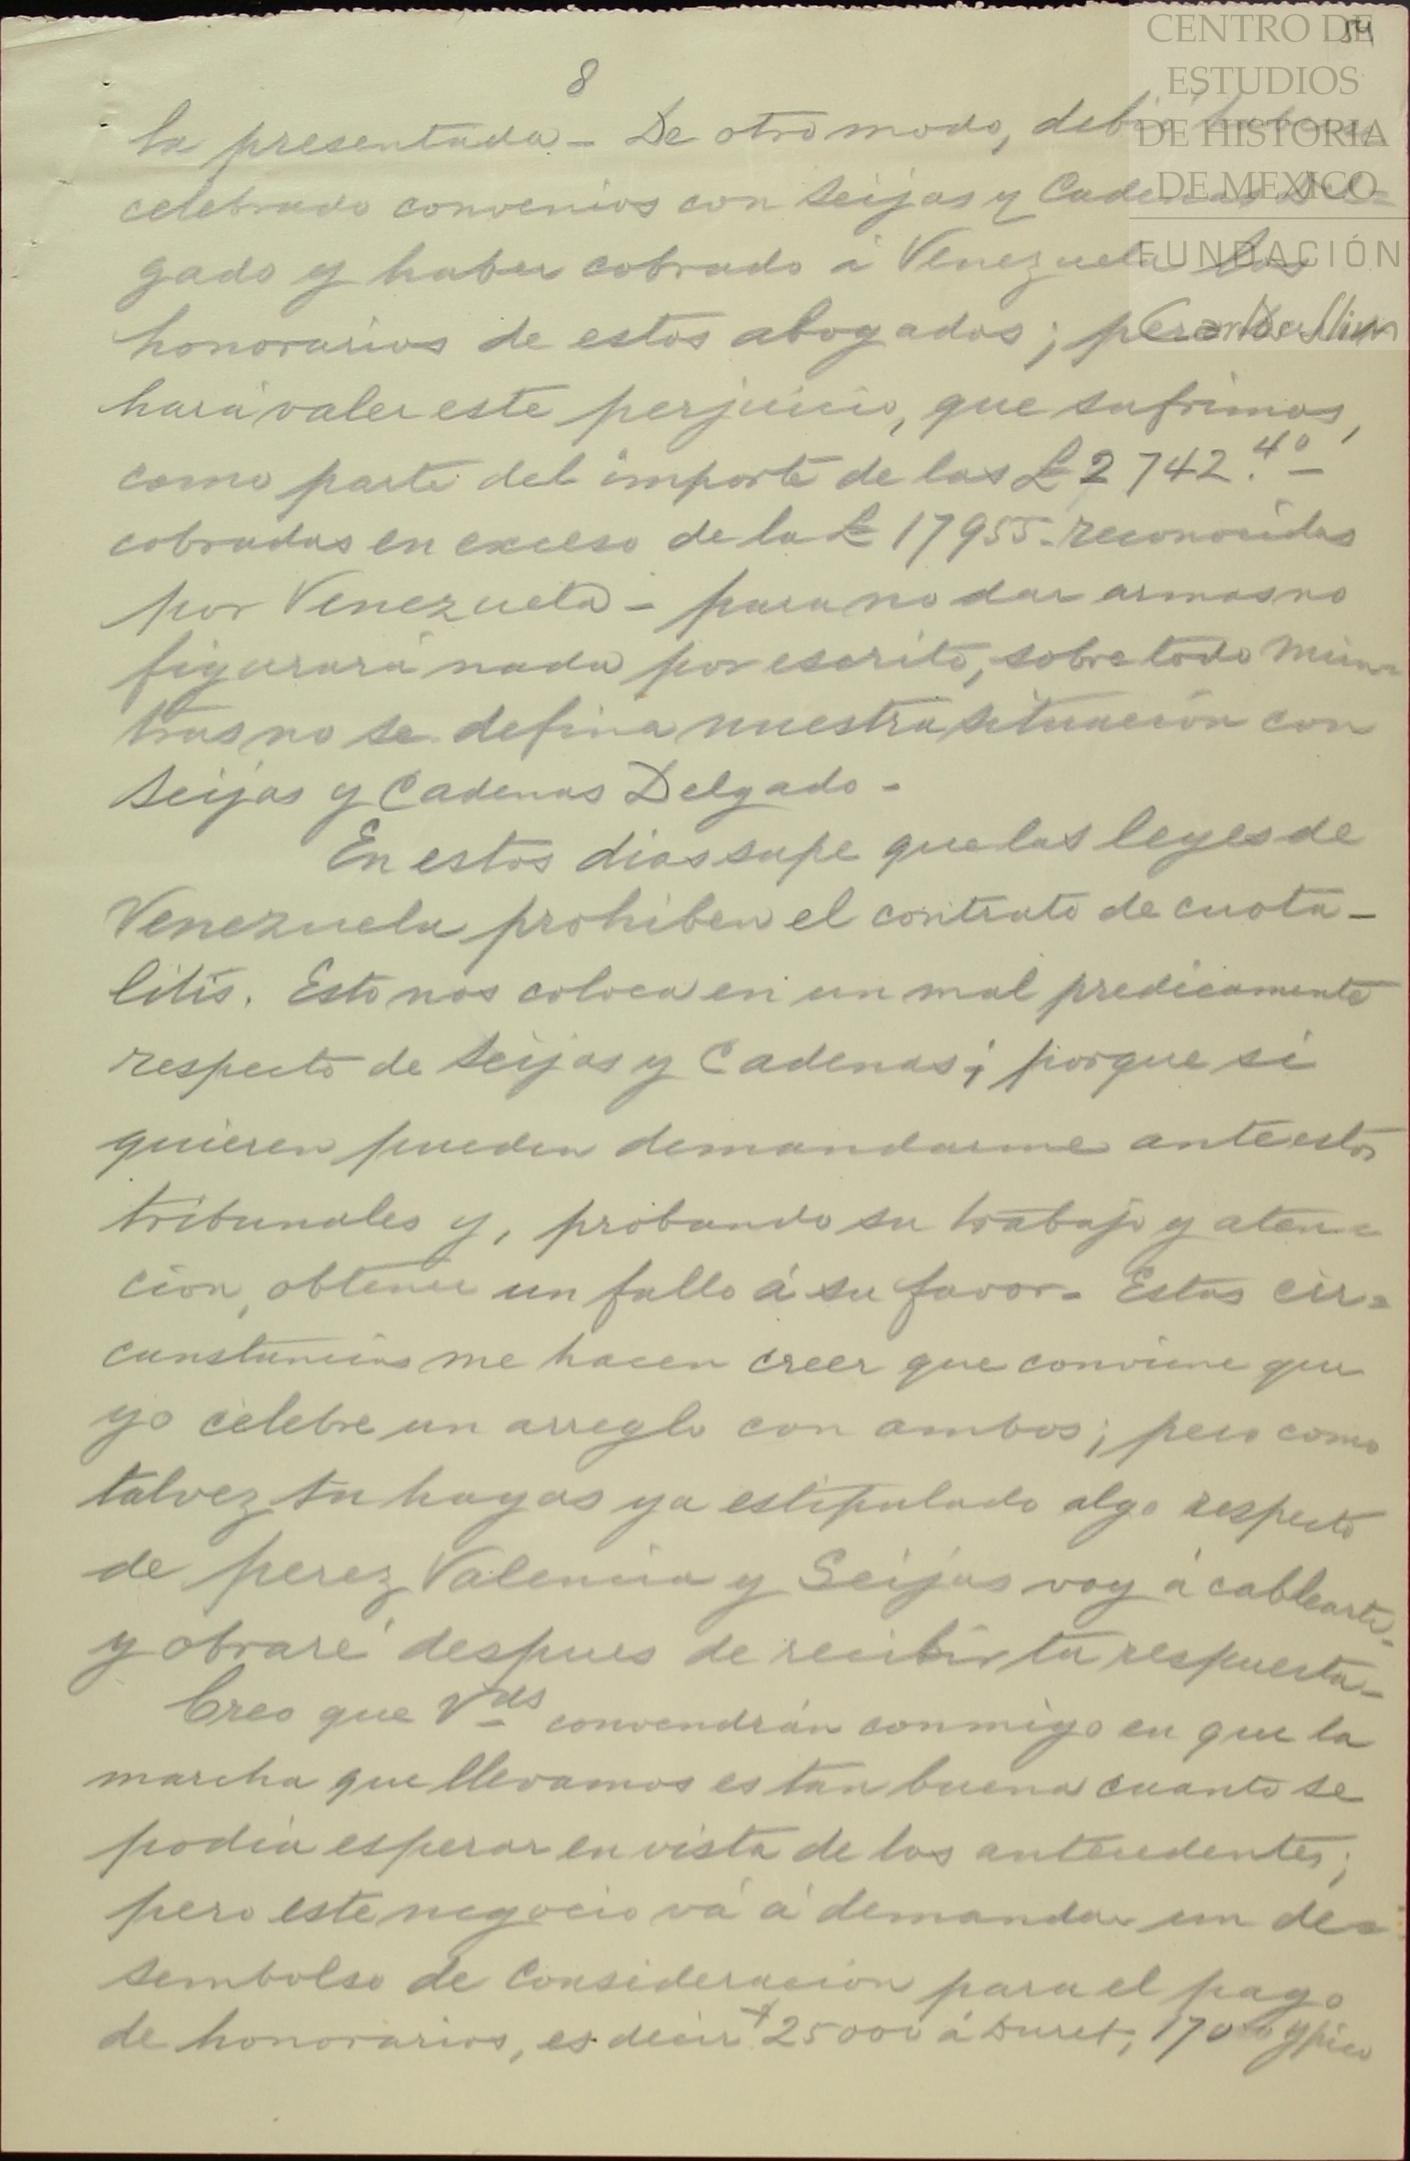 CENTRO DE
ESTUDIOS
DE HISTORIA
DE MEXICO
FUNDACIÓN
Carlos Slim
54
8
la presentada - De otro modo, debió haberse
celebrado convenios con Seijas y Cadenas Del=
gado y haber cobrado á Venezuela los
honorarios de estos abogados; pero
hará valer este perjuicio, que sufrimos,
como parte del importe de las £ 2742.4º
cobradas en exceso de la £ 17955 - reconocidas
por Venezuela - para no dar armas no
figurará nada por escrito, sobre todo mien=
tras no se defina nuestra situación con
Seijas y Cadenas Delgado -
En estos dias supe que las leyes de
Venezuela prohiben el contrato de cuota-
litis. Esto nos coloca en un mal predicamento
respecto de Seijas y Cadenas; porque si
quieren pueden demandarme ante estos
tribunales y, probando su trabajo y aten=
cion, obtener un fallo á su favor - Estas cir=
cunstancias me hacen creer que conviene que
yo celebre un arreglo con ambos; pero como
talvez tu hayas ya estipulado algo respecto
de perez Valencia y Seijas voy á cablearte -
y obraré despues de recibir tu respuesta -
Creo que Vdes convendrán conmigo en que la
marcha que llevamos es tan buena cuanto se
podia esperar en vista de los antecedentes;
pero este negocio vá á demandar un de=
sembolso de consideracion para el pago
de honorarios, es decir $ 25000 á Duret, 17000 y pico